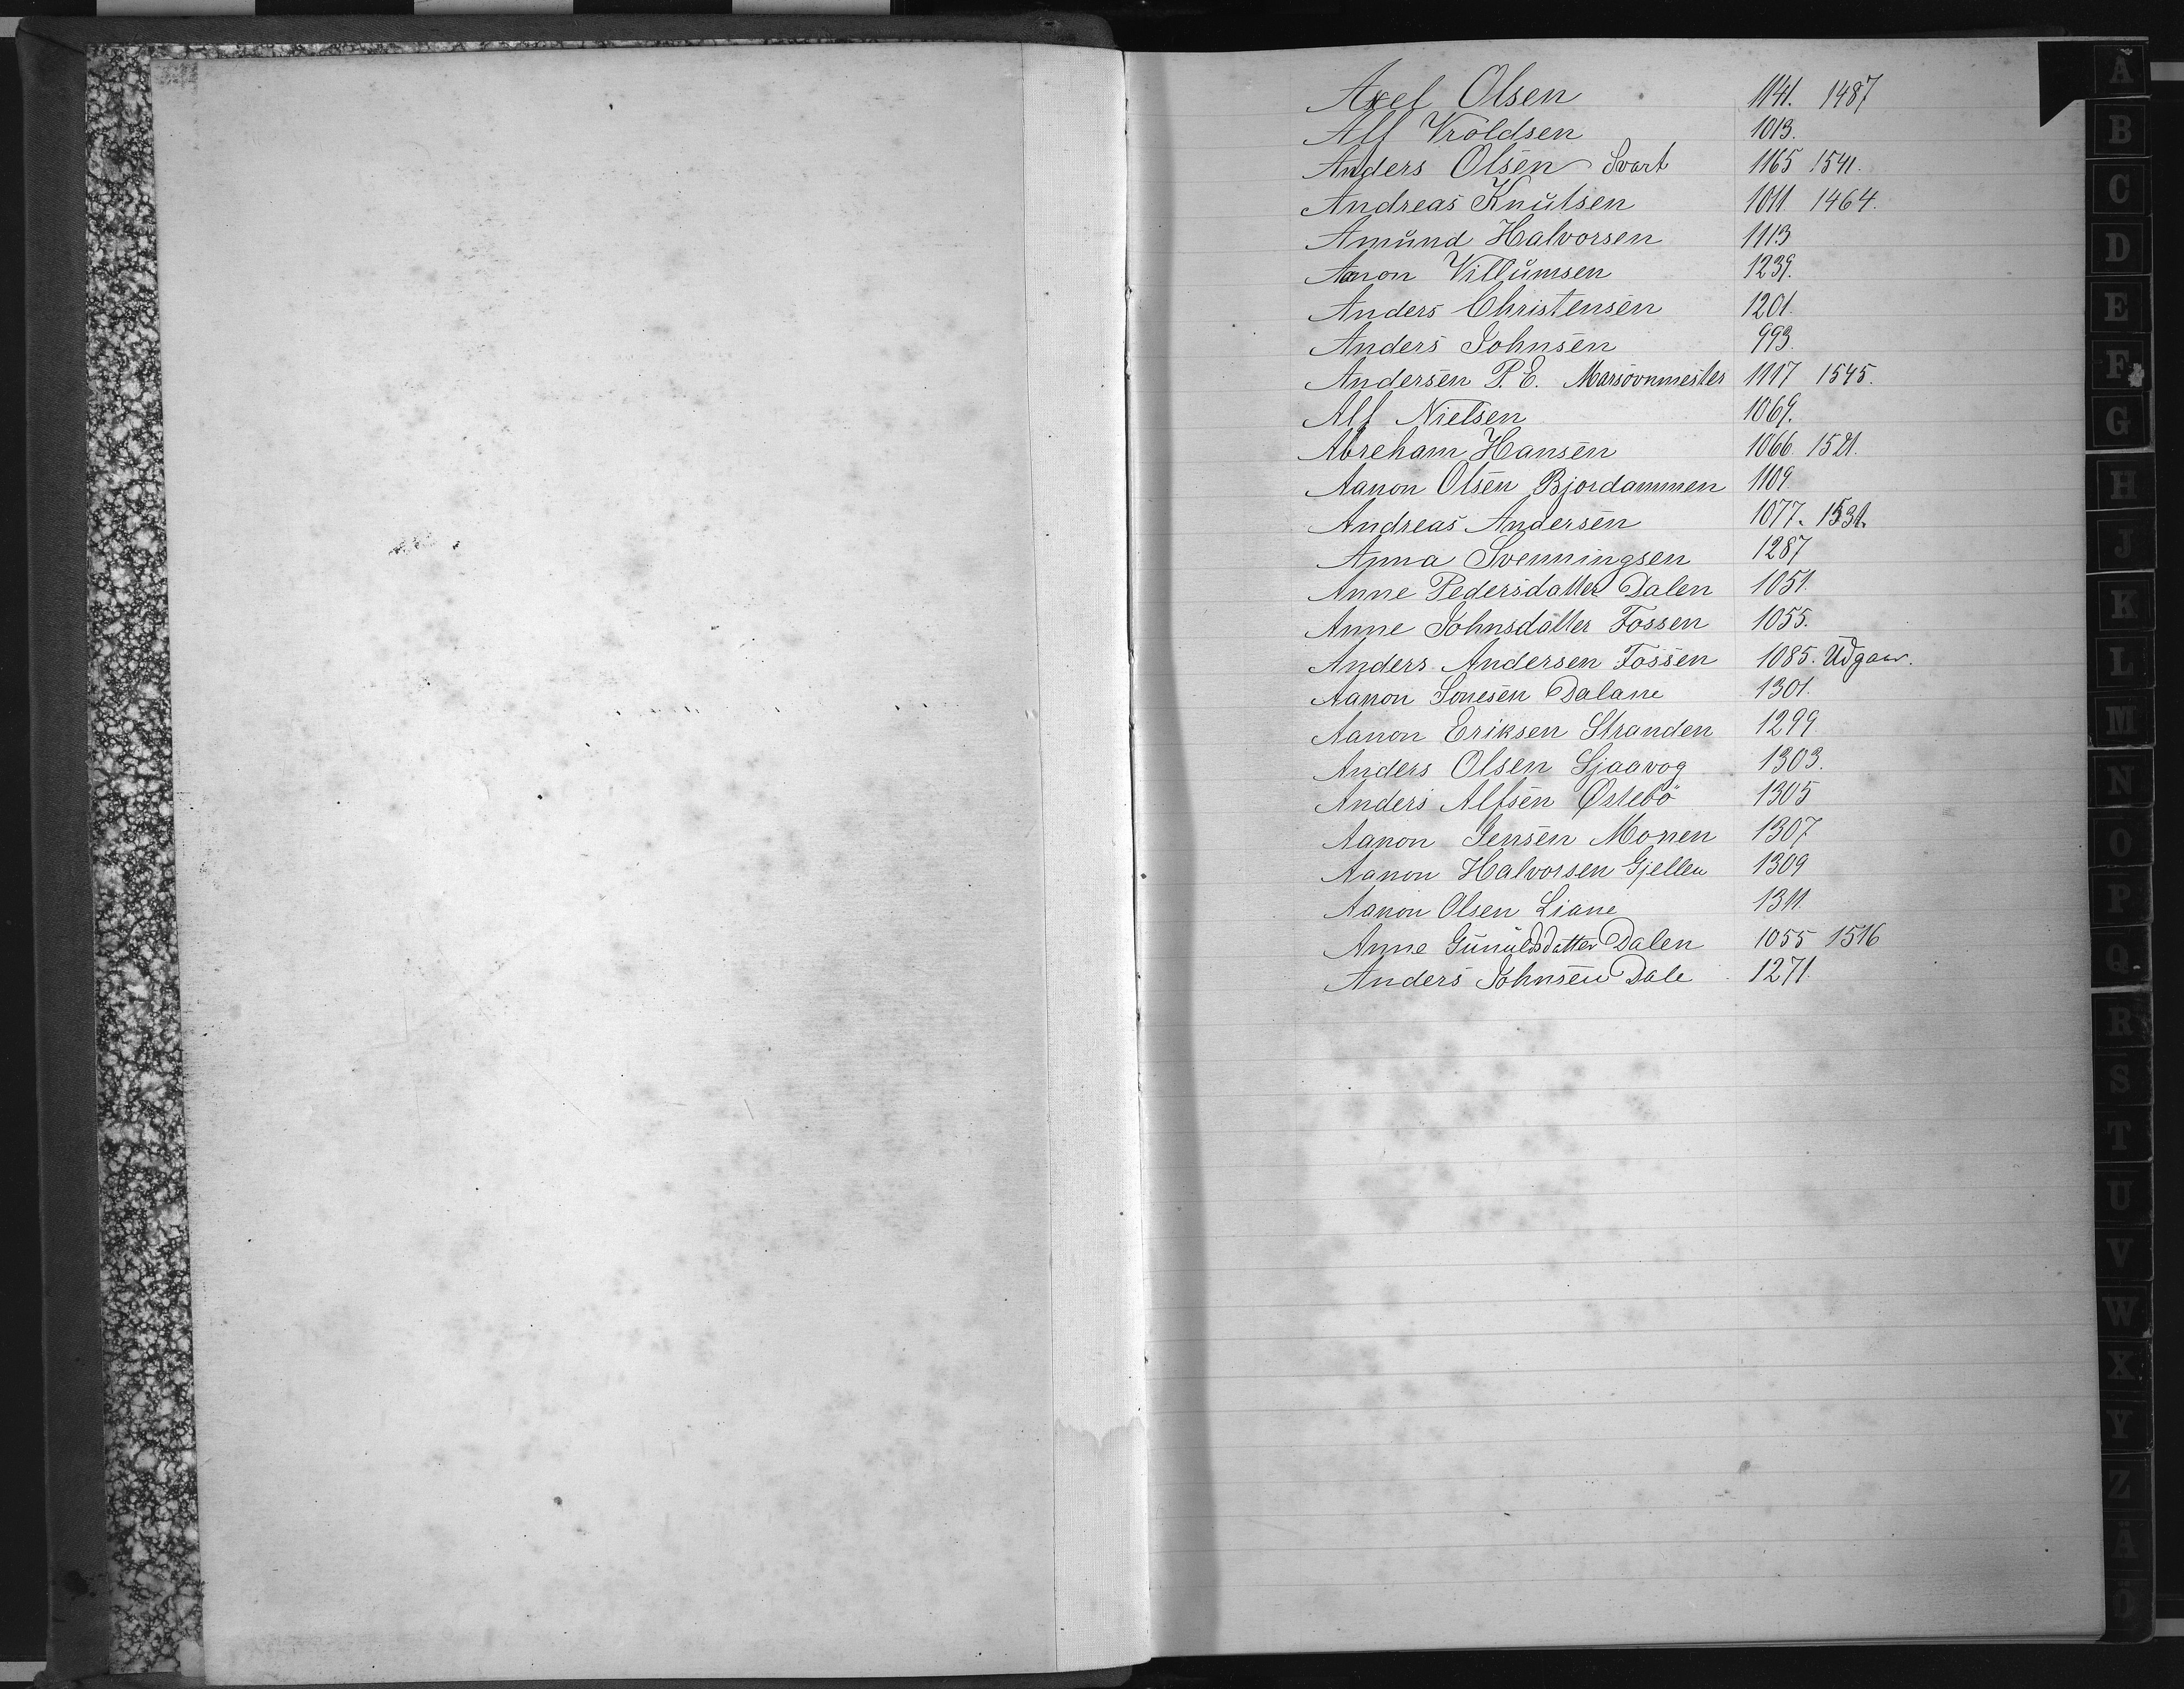 Axel Olsen 1141. 1487
Alf Vroldsen 1013.
Anders Olsen Svart 1165 1541.
Andreas Knutsen 1011 1464.
Amund Halvorsen 1113
Aanon Villumsen 1239.
Anders Christensen 1201.
Anders Johnsen 993.
Andersen P. E. Marsovnmester 1117 1545.
Alf Nielsen 1069.
Abreham Hansen 1066. 1521.
Aanon Olsen Bjordammen 1109
Andreas Andersen 1077. 1531.
Anna Svenningsen 1287
Anne Pedersdatter Dalen 1051.
Anne Johnsdatter Fossen 1055.
Anders Andersen Fossen 1085. Udgaar.
Aanon Jonesen Dalane 1301.
Aanon Eriksen Stranden 1299
Anders Olsen Sjaavog 1303.
Anders Alfsen Østebö 1305
Aanon Jensen Monen 1307
Aanon Halvorsen Gjellen 1309
Aanon Olsen Liane 1311
Anne Gunuldsdatter Dalen 1055 1516
Anders Johnsen Dale 1271.
A
B
C
D
E
F
G
H
J
K
L
M
N
O
P
Q
R
S
T
U
V
W
X
Y
Z
Ä
Ö